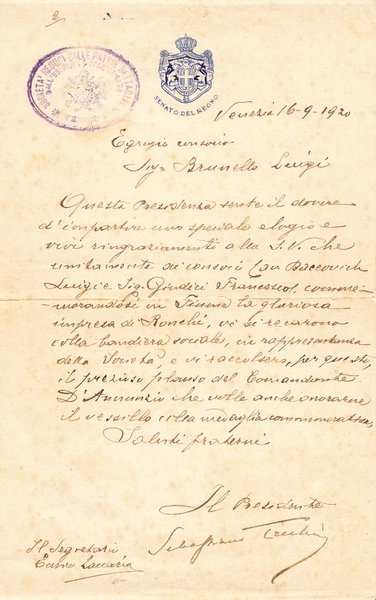 2
SOCIETA' REDUCI DALLE PATRIE BATTAGLIE
SENATO DEL REGNO
Venezia 16-9-1920
Egregio consocio
Sig. Brunello Luigi
Questa Presidenza sente il dovere
d'impartire uno speciale elogio e
vivi ringraziamenti alla S.V. che
unitamente ai consoci Cav. Baccovich
Luigi e Sig. Giudici Francesco, comme-
morandosi in Fiume la gloriosa
impresa di Ronchi, vi si recarono
colla bandiera sociale, in rappresentanza
della Società e vi raccolsero, per questo,
il prezioso plauso del Comandante
D'Annunzio che volle anche onorarne
il vessillo colla medaglia commemorativa.
Saluti fraterni
Il Presidente
Sebastiano
Il Segretario